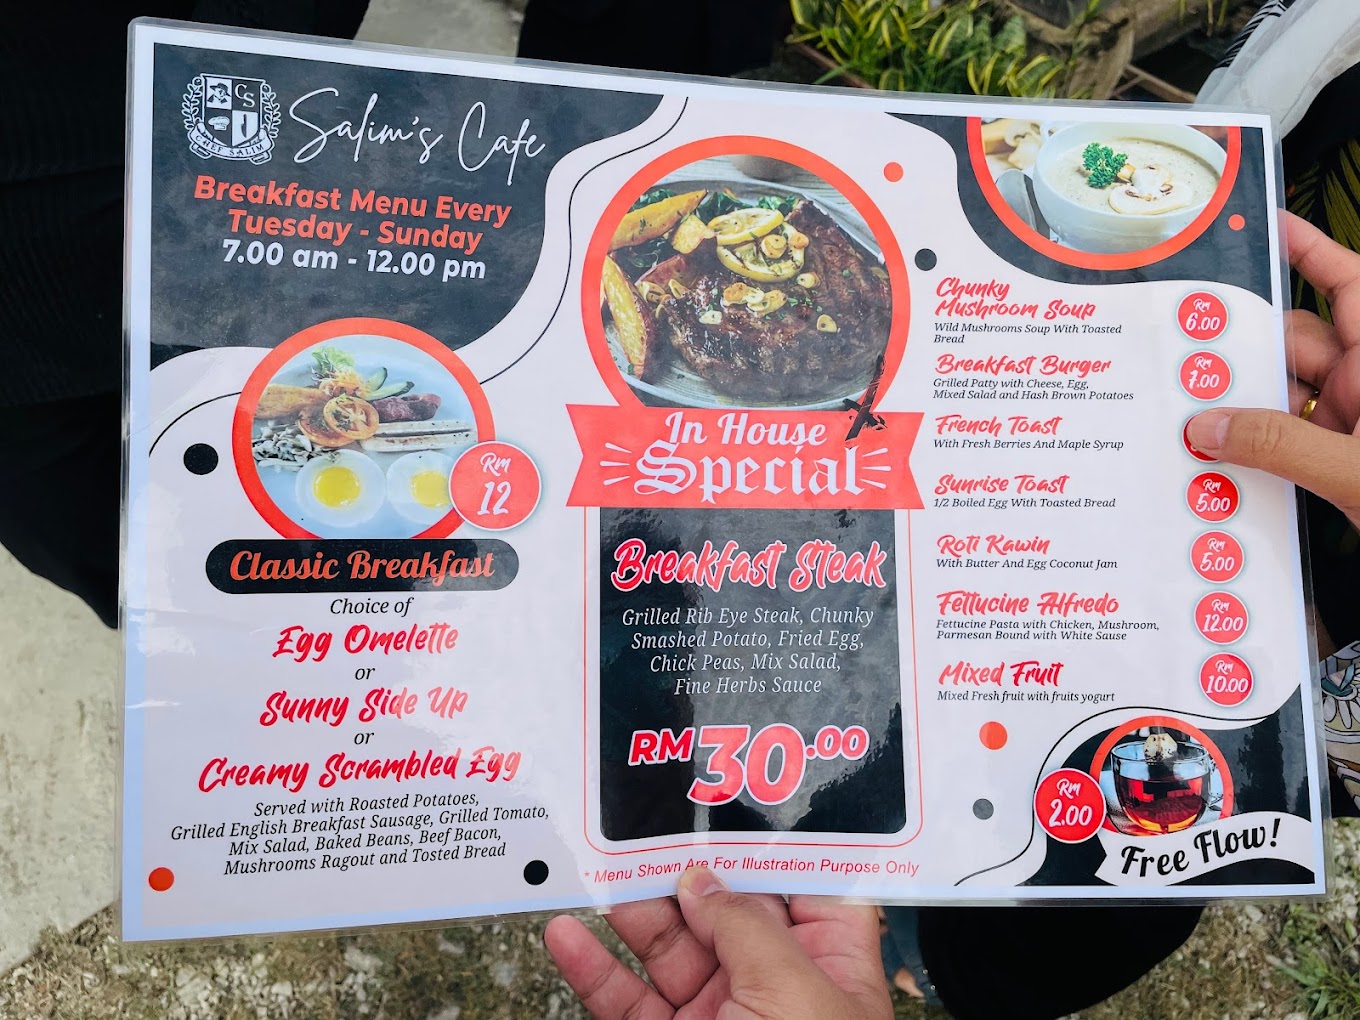 CS
CHEF SALIM
Salim's Cafe
Breakfast Menu Every
Tuesday - Sunday
7.00 am - 12.00 pm
RM
12
Classic Breakfast
Choice of
Egg Omelette
or
Sunny Side Up
or
Creamy Scrambled Egg
Served with Roasted Potatoes,
Grilled English Breakfast Sausage, Grilled Tomato,
Mix Salad, Baked Beans, Beef Bacon,
Mushrooms Ragout and Tosted Bread
In House
Special
Breakfast Steak
Grilled Rib Eye Steak, Chunky
Smashed Potato, Fried Egg,
Chick Peas, Mix Salad,
Fine Herbs Sauce
RM30.00
* Menu Shown Are For Illustration Purpose Only
Chunky
Mushroom Soup
Wild Mushrooms Soup With Toasted
Bread
RM
6.00
Breakfast Burger
Grilled Patty with Cheese, Egg,
Mixed Salad and Hash Brown Potatoes
RM
7.00
French Toast
With Fresh Berries And Maple Syrup
Sunrise Toast
1/2 Boiled Egg With Toasted Bread
RM
5.00
Roti Kawin
With Butter And Egg Coconut Jam
RM
5.00
Fettucine Alfredo
Fettucine Pasta with Chicken, Mushroom,
Parmesan Bound with White Sause
RM
12.00
Mixed Fruit
Mixed Fresh fruit with fruits yogurt
RM
10.00
RM
2.00
Free Flow!